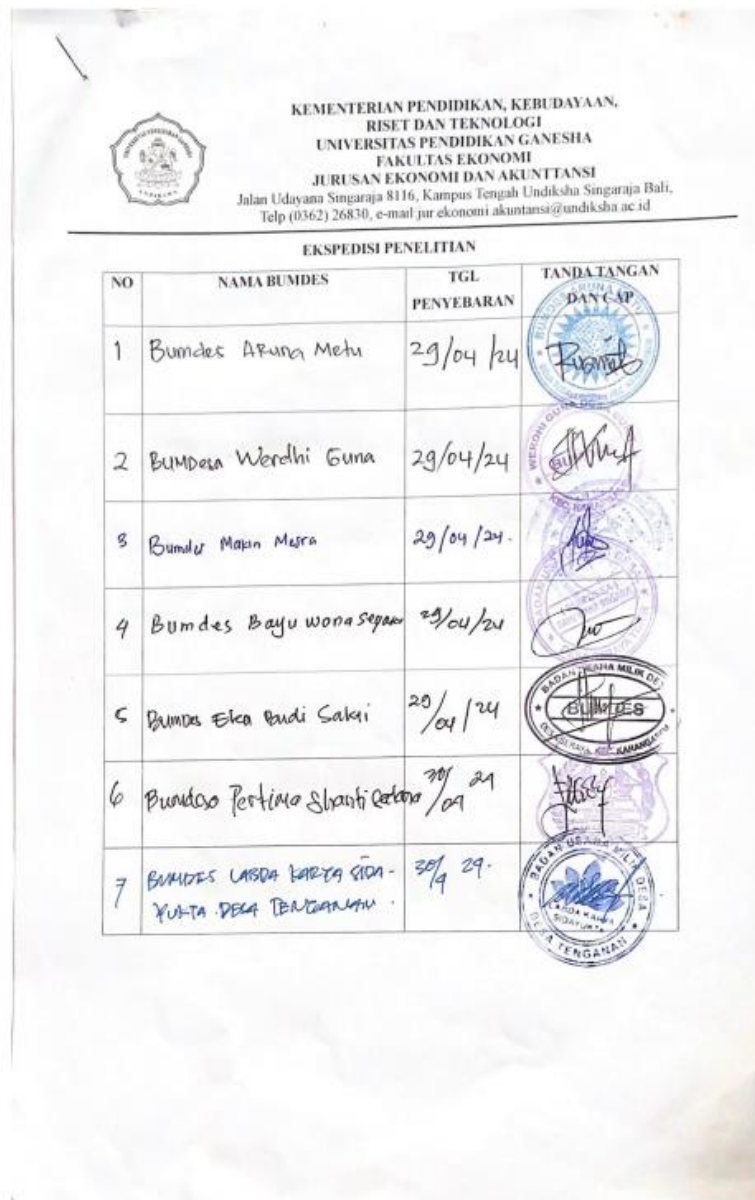 KEMENTERIAN PENDIDIKAN, KEBUDAYAAN,
RISET DAN TEKNOLOGI
UNIVERSITAS PENDIDIKAN GANESHA
FAKULTAS EKONOMI
JURUSAN EKONOMI DAN AKUNTTANSI
Jalan Udayana Singaraja 8116, Kampus Tengah Undiksha Singaraja Bali,
Telp (0362) 26830, e-mail:jur.ekonomi.akuntansi@undiksha.ac.id
EKSPEDISI PENELITIAN
NO NAMA BUMDES TGL PENYEBARAN TANDA TANGAN DAN CAP
1 Bumdes Aruna Metu 29/04/24
2 BUMDesa Werdhi Guna 29/04/24
3 Bumdes Makin Mesra 29/04/24.
4 Bumdes Bayu wona segara 29/04/24
5 Bumdes Eka Budi Sakti 29/04/24
BADAN USAHA MILIK DESA
BUMDES
6 Bumdesa Pertima Shanti 30/04 24
7 BUMDES LABDA KARYA SIDA-
YUKTA DESA TENGANAN. 30/4 24.
BADAN USAHA MILIK DESA
LABDA KARYA
SIDAYUKTA
DESA TENGANAN